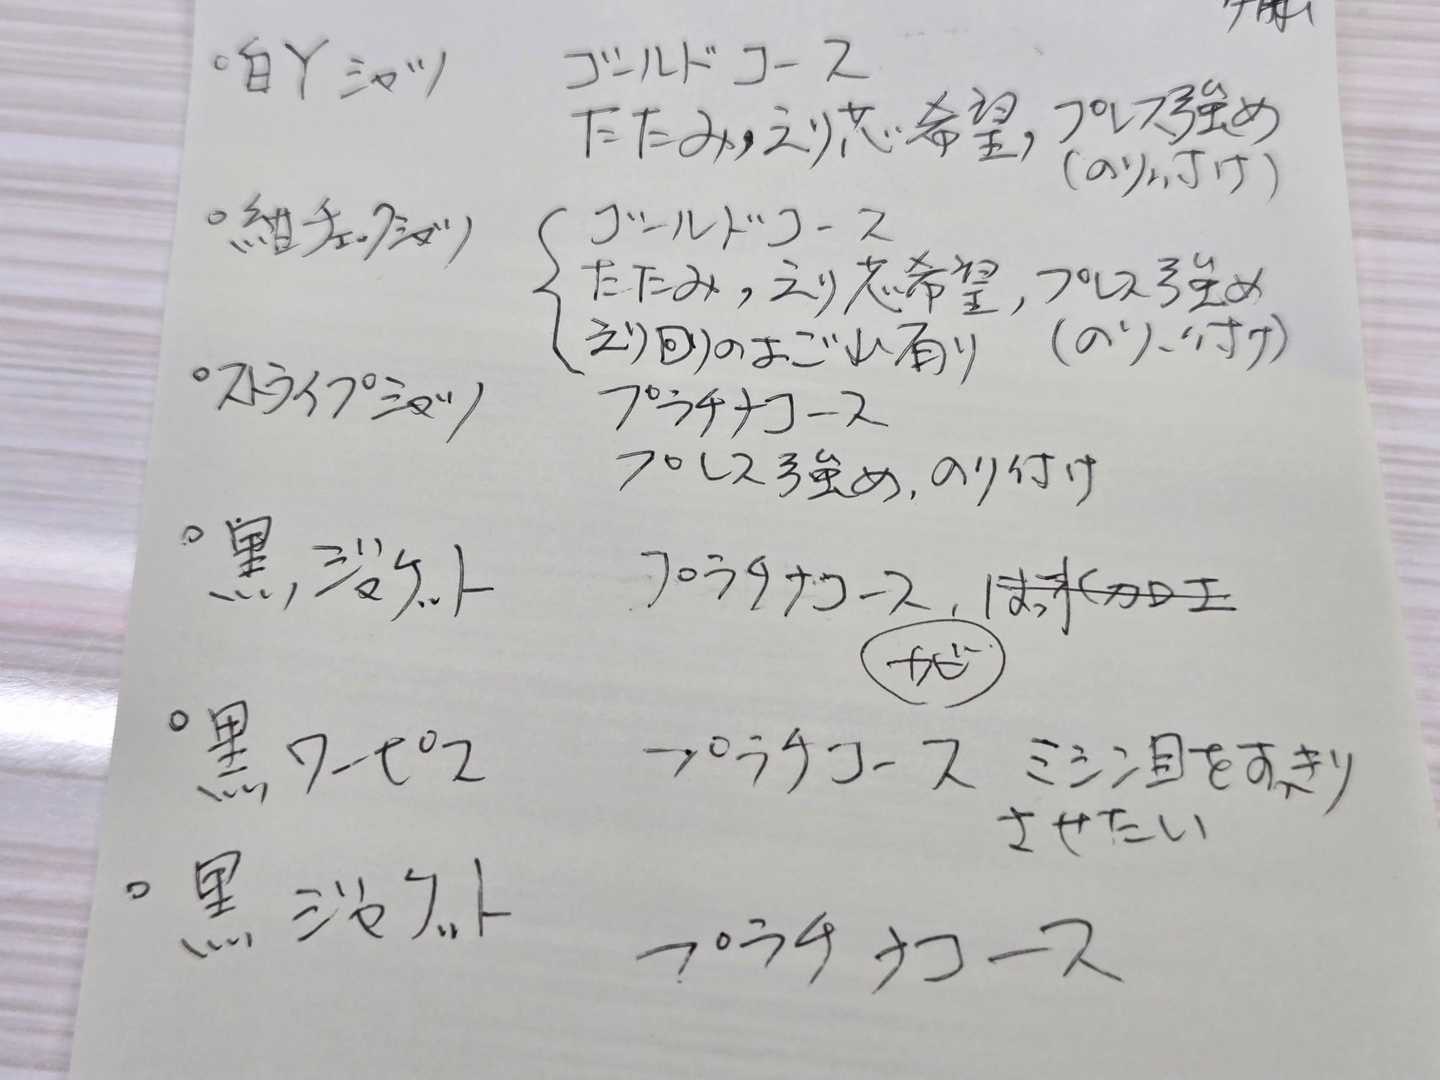 。白Yシャツ ゴールドコース
たたみ,えり芯希望,プレス強め
(のり付け)
。紺チェックシャツ ゴールドコース
たたみ,えり芯希望,プレス強め
えり回りのよごれ有り (のり付け)
。ストライプシャツ プラチナコース
プレス強め,のり付け
。黒,ジャケット プラチナコース,はっ水加工
カビ
。黒ワーピス プラチナコース ミシン目をすっきり
させたい
。黒ジャケット プラチナコース